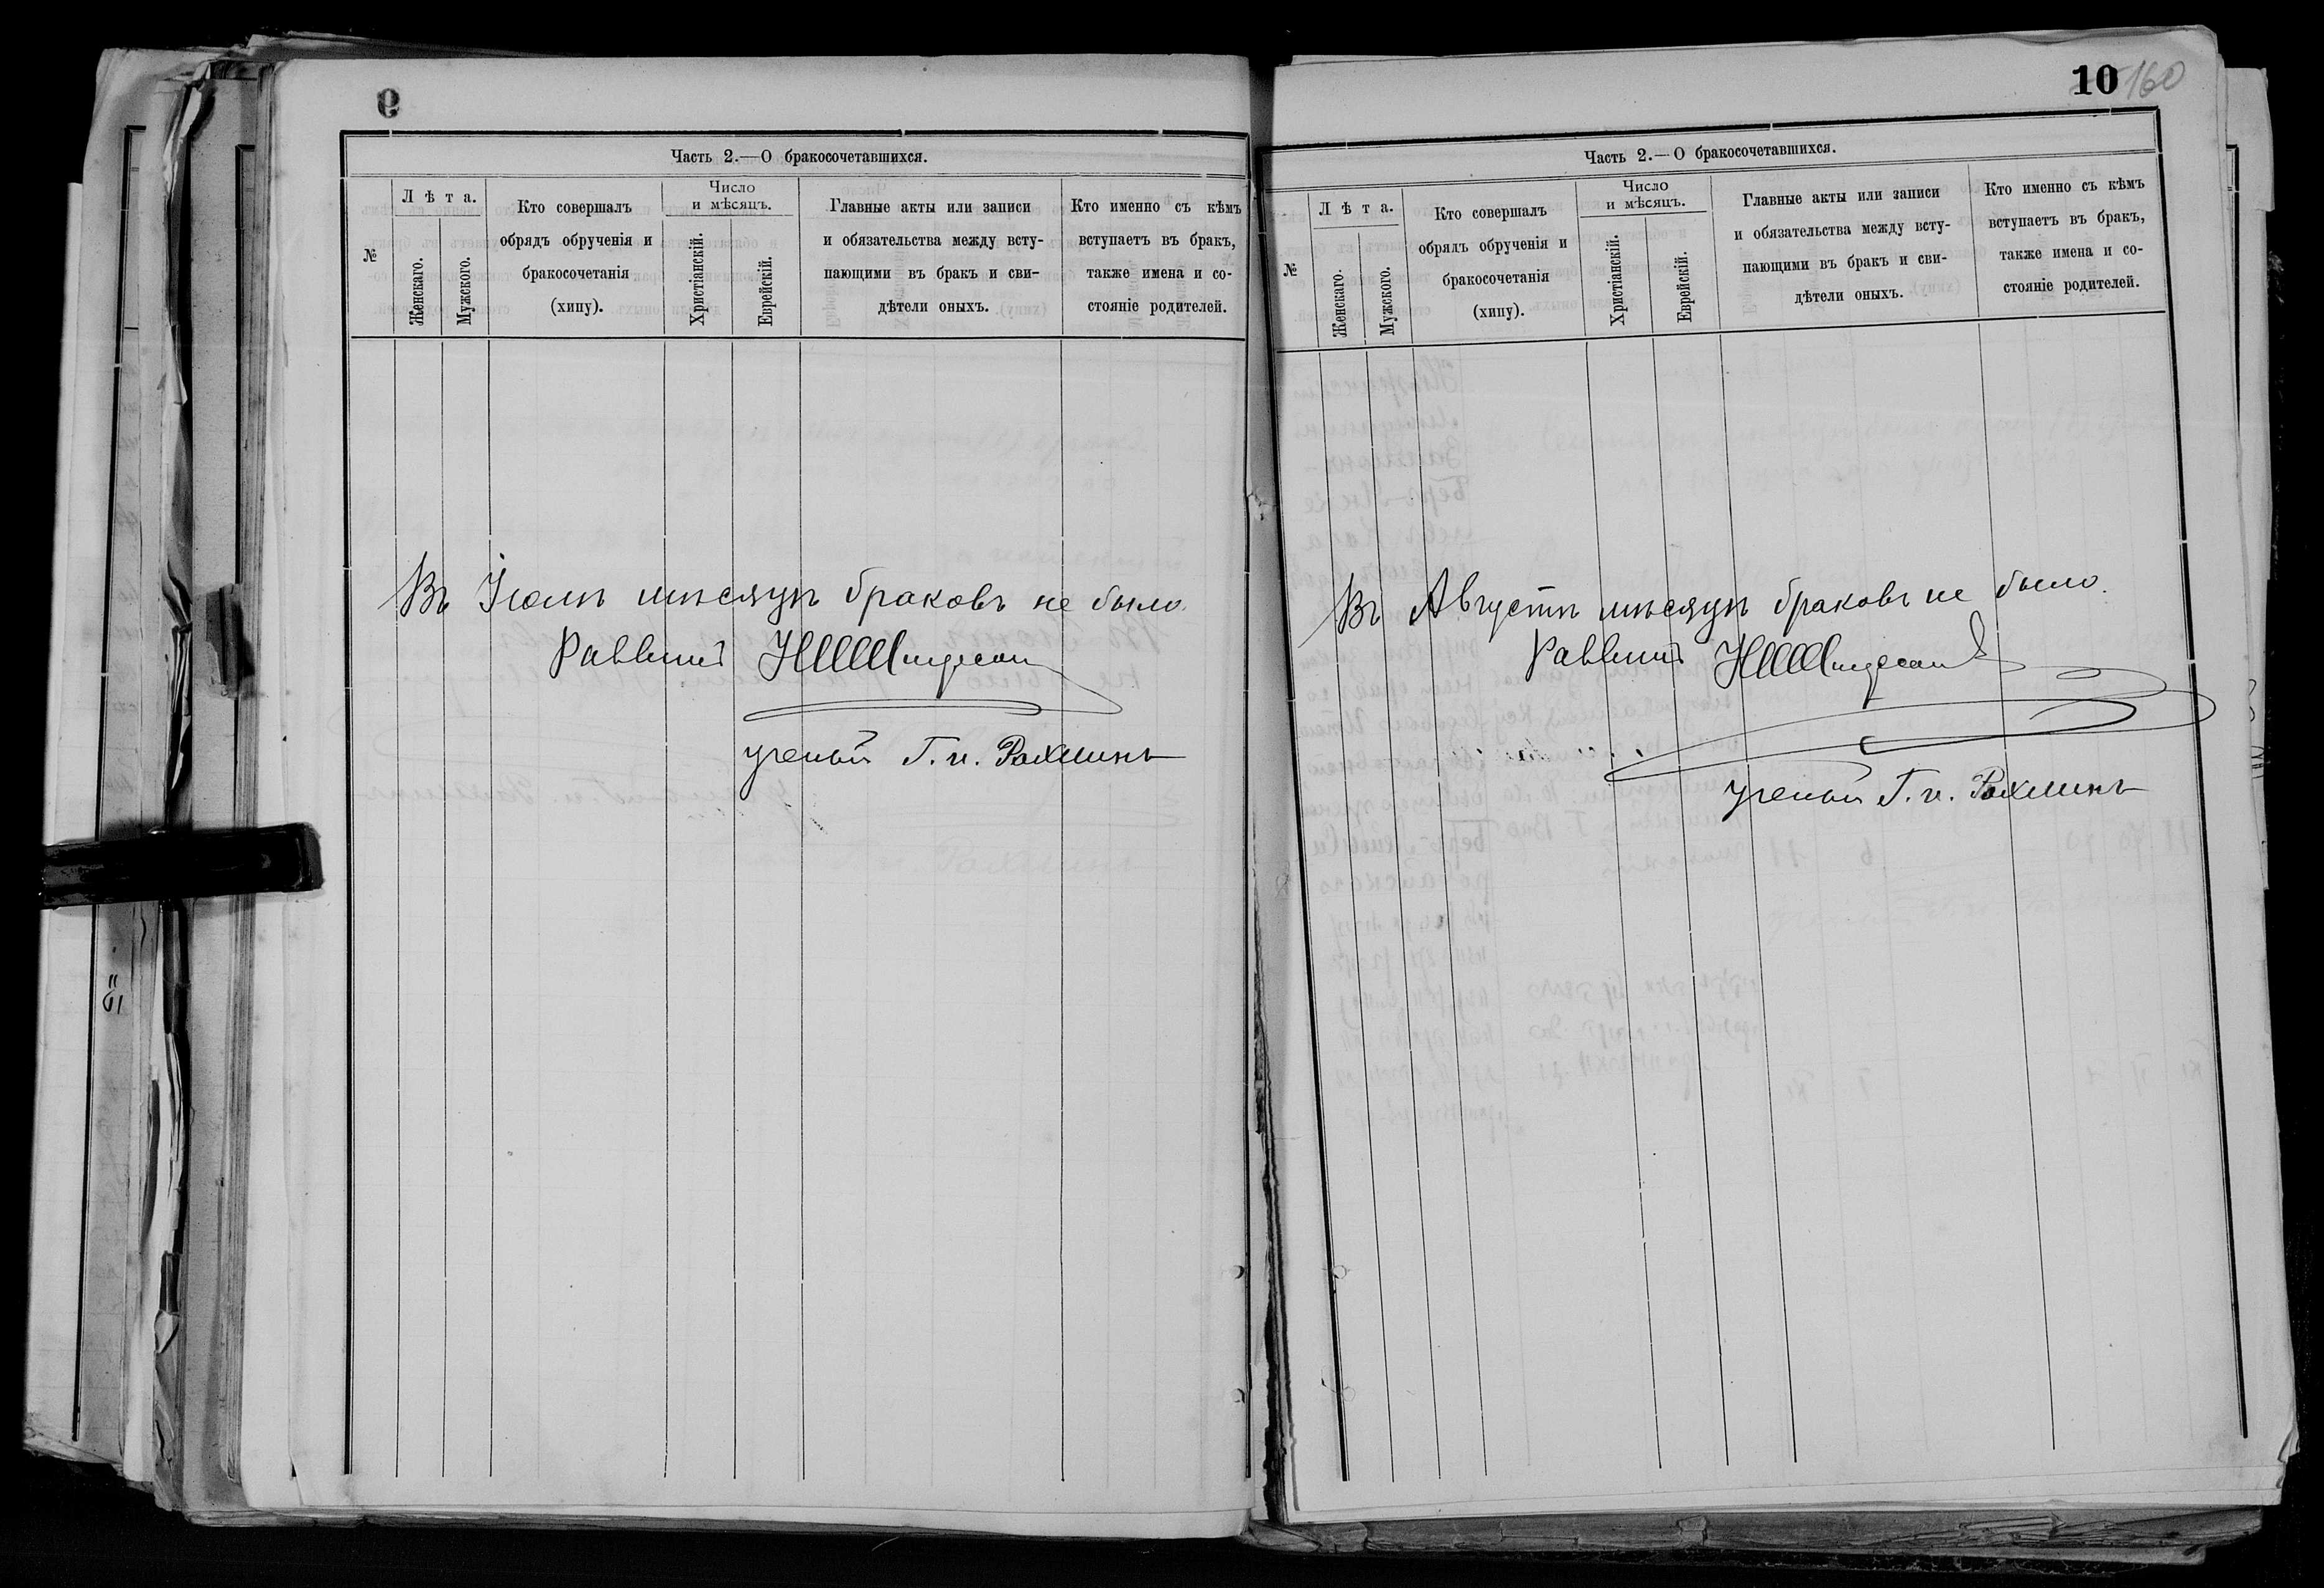 Часть 2.—О бракосочетавшихся.
№
Лѣта.
Женскаго.
Мужского.
Кто совершалъ
обрядъ обрученія и
бракосочетанія
(хипу).
Число
и мѣсяцъ.
Христіанскій.
Еврейскій.
Главные акты или записи
и обязательства между всту-
пающими въ бракъ и сви-
дѣтели оныхъ.
Кто именно съ кѣмъ
вступаетъ въ бракъ,
также имена и со-
стояніе родителей.
Въ Іюлѣ мѣсяцѣ браковъ не было.
Раввинъ
ученый Г. и. Рахлинъ
10 160
Часть 2.—О бракосочетавшихся.
№
Лѣта.
Женскаго.
Мужского.
Кто совершалъ
обрядъ обрученія и
бракосочетанія
(хипу).
Число
и мѣсяцъ.
Христіанскій.
Еврейскій.
Главные акты или записи
и обязательства между всту-
пающими въ бракъ и сви-
дѣтели оныхъ.
Кто именно съ кѣмъ
вступаетъ въ бракъ,
также имена и со-
стояніе родителей.
Въ Августѣ мѣсяцѣ браковъ не было.
Раввинъ
ученый Г. и. Рахлинъ